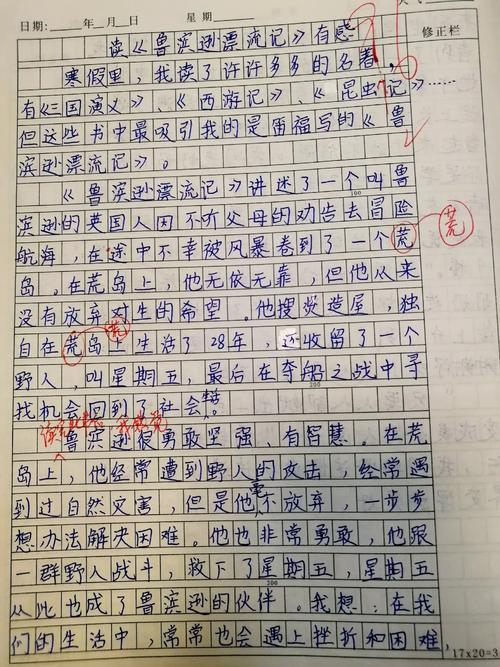 日期: 年 月 日 星期
修正栏
读《鲁滨逊漂流记》有感
寒假里,我读了许许多多的名著,
有《三国演义》、《西游记》、《昆虫记》……
但这些书中最吸引我的是雷福写的《鲁
滨逊漂流记》。
《鲁滨逊漂流记》讲述了一个叫鲁
100
滨逊的英国人因不听父母的劝告去冒险
航海,在途中不幸被风暴卷到了一个荒
荒
岛。在荒岛上,他无依无靠,但他从来
没有放弃对生的希望。他搜炭造屋,独
荒
自在荒岛上生活了28年,还收留了一个
野人,叫星期五,最后在夺船之战中寻
200
找机会回到了社会。
鲁滨逊很勇敢坚强,有智慧。在荒
岛上,他经常遭到野人的攻击,经常遇
到过自然灾害,但是他毫不放弃,一步步
想办法解决困难。他也非常勇敢,他跟
一群野人战斗,救下了星期五,星期五
300
从此也成了鲁滨逊的伙伴。我想:在我
们的生活中,常常也会遇上挫折和困难,
17×20=3